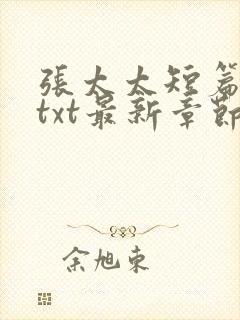 張太太短篇
txt最新章節
余旭東